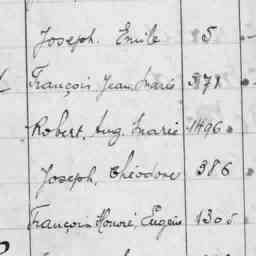 Joseph. Emile 5
François Jean Marie 371
Robert, Aug. Marie 1496
Joseph, Théodore 386
François Honoré, Eugène 1305